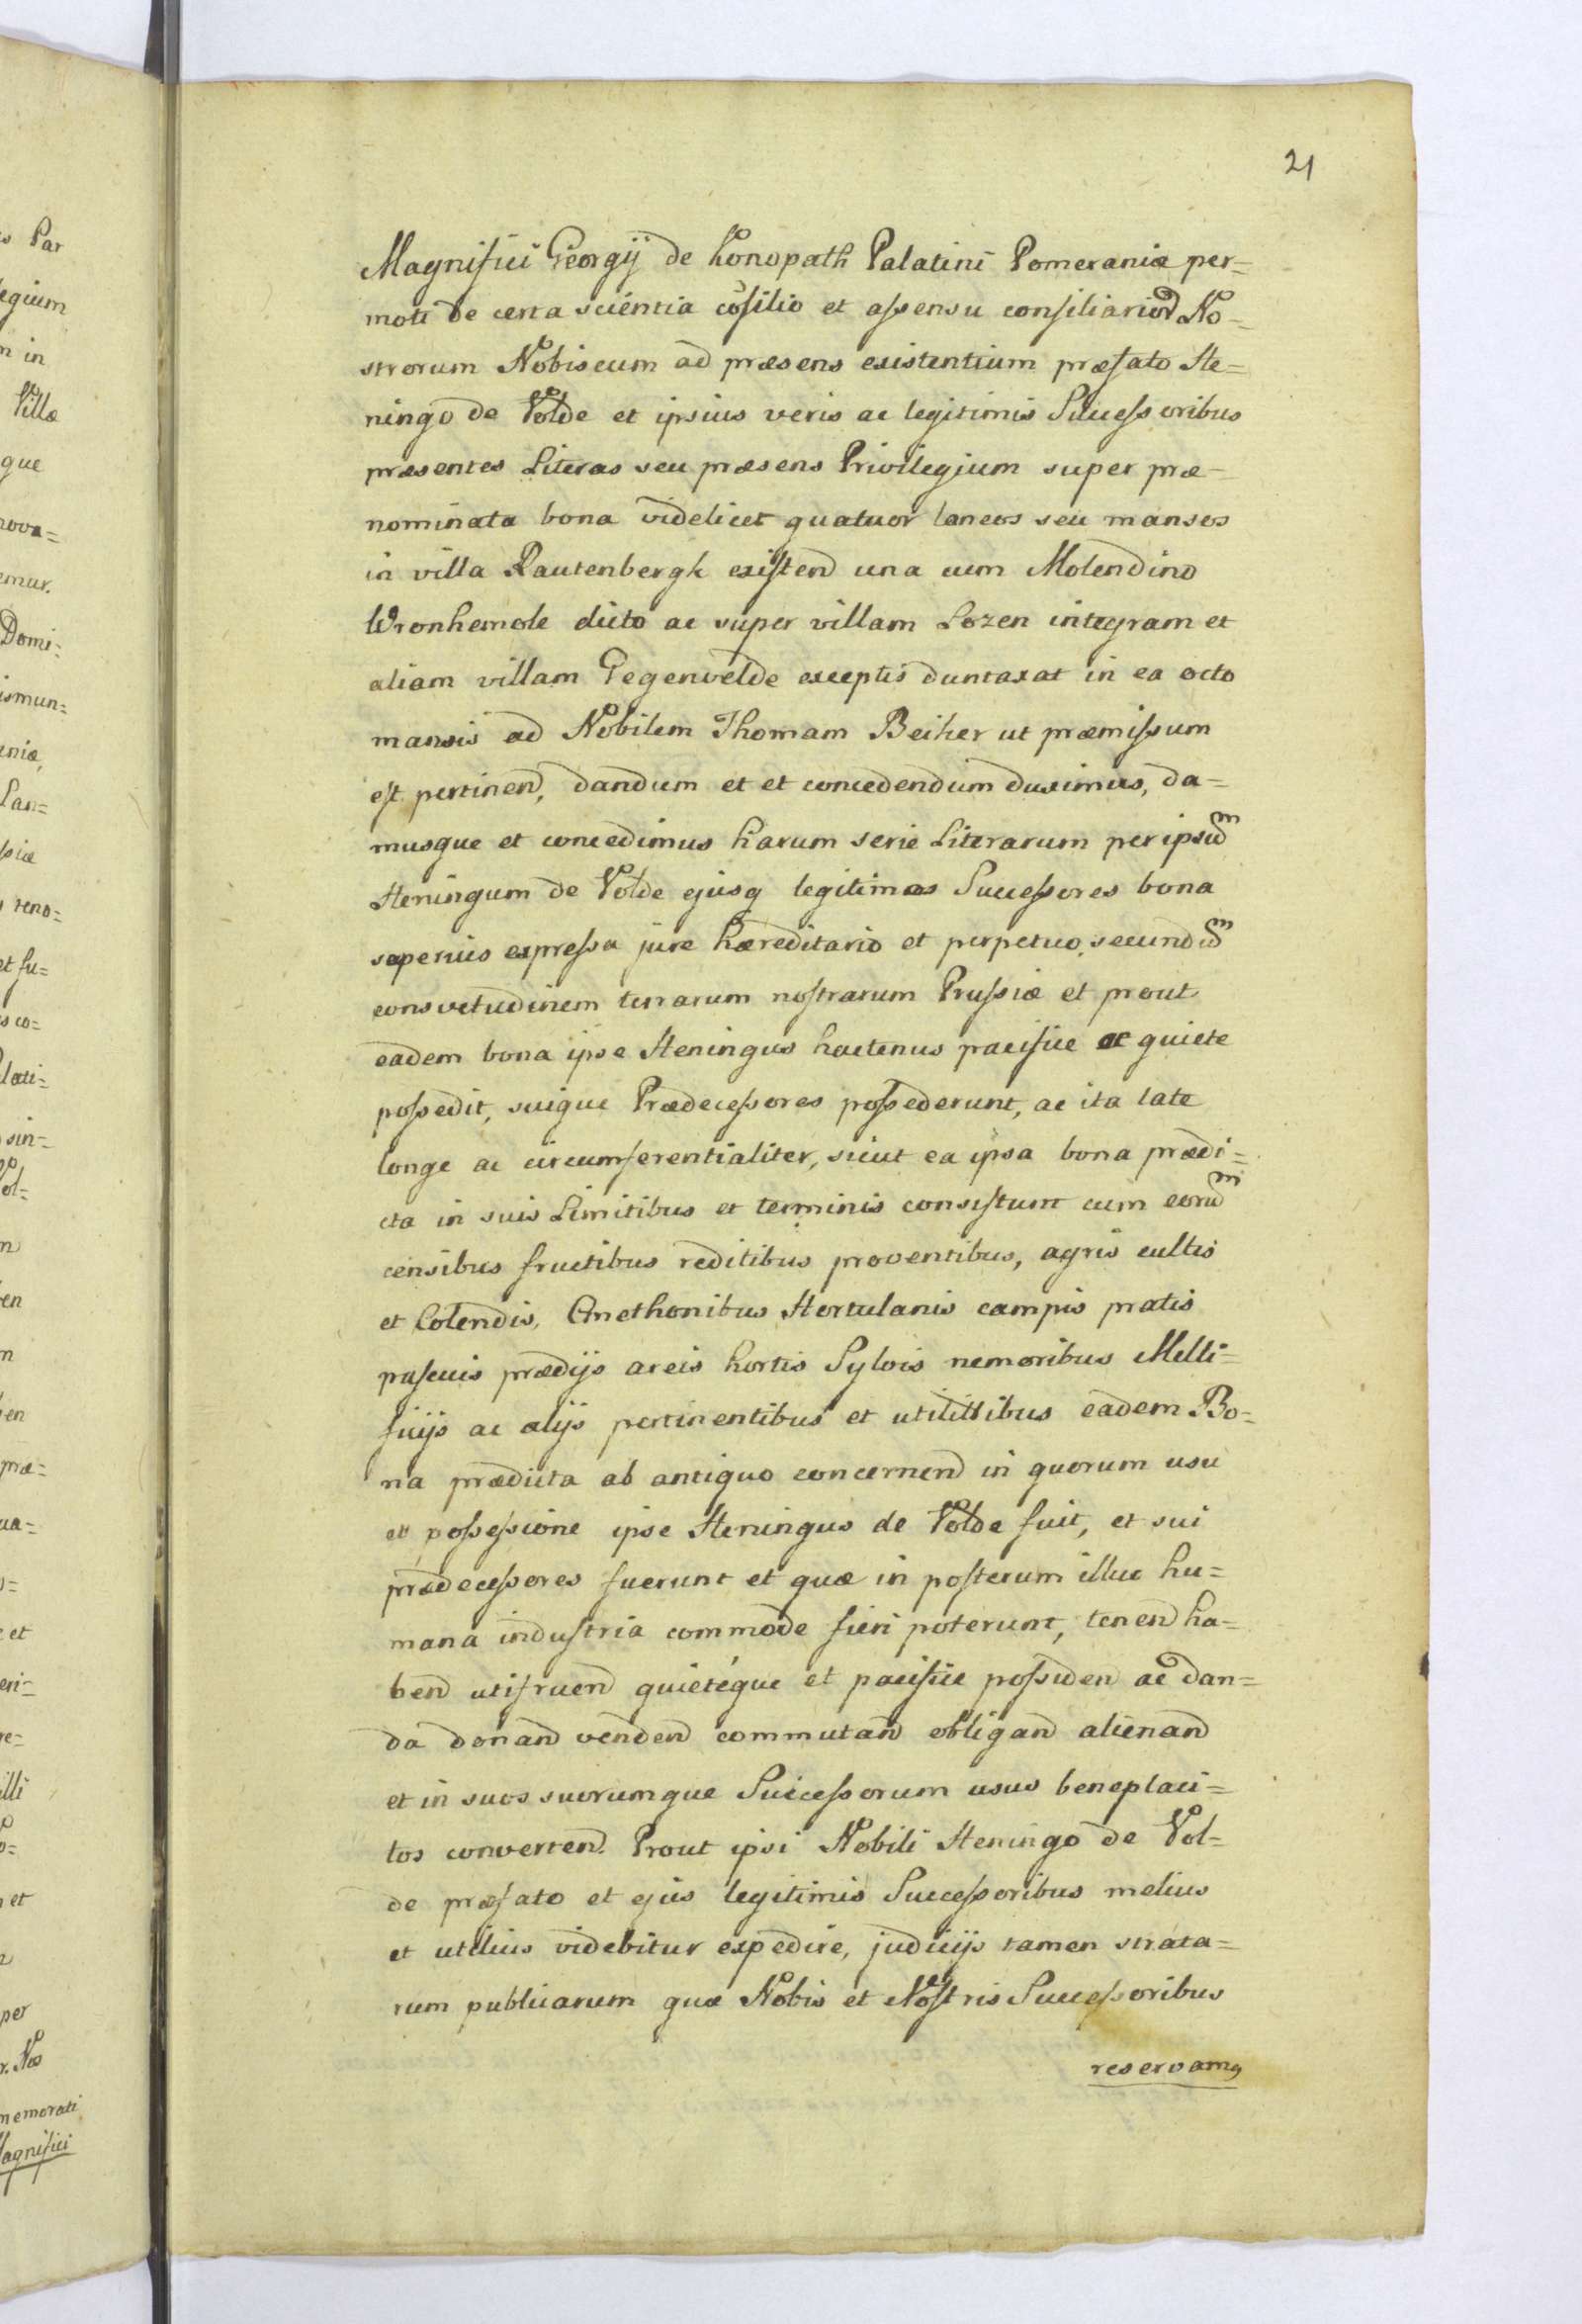 21
Magnifici Georgij de Konopath Palatini Pomeraniæ per=
moti de certa scientia cõsilio et assensu consiliariorũ No-
strorum Nobiscum ad præsens existentium præfato He=
ningo de Volde et ipsius veris ac legitimis Successoribus
præsentes Literas seu præsens Privilegium super præ-
nominata bona videlicet quatuor laneos seu mansos
in villa Rautenbergk existend una cum Molendino
Wronhemole dicto ac super villam Lozen integram et
aliam villam Gegenvelde exceptis duntaxat in ea octo
mansis ad Nobilem Thomam Beiher ut præmissum
est pertinend, dandum et et concedendum duximus, da=
musque et concedimus harum serie Literarum per ipsũm
Heningum de Volde ejusq legitimos Successores bona
superius expressa jure hæreditario et perpetuo, secundũm
consvetudinem terrarum nostrarum Prussiæ et prout
eadem bona ipse Heningus hactenus pacifice ac quiete
possedit, suique Prædecessores possederunt, ac ita late
longe ac circumferentialiter, sicut ea ipsa bona prædi=
cta in suis Limitibus et terminis consistunt cum eorũm
censibus fructibus reditibus proventibus, agris cultis
et Colendis, Cmethonibus Hortulanis campis pratis
pascuis prædijs areis hortis Sylvis nemoribus Melli=
ficijs ac alijs pertinentibus et utilittibus eadem Bo=
na prædicta ab antiquo concernend in quorum usu
et possessione ipse Heningus de Volde fuit, et sui
prædecessores fuerunt et quæ in posterum illuc hu=
mana industria commode fieri poterunt, tenend ha=
bend utifruend quietéque et pacifice possiden ac dan=
da donand venden commutand obligand alienand
et in suos suorumque Successorum usus beneplaci=
tos converten. Prout ipsi Nobili Heningo de Vol=
de præfato et ejus legitimis Successoribus melius
et utilius videbitur expedire, judicijs tamen strata=
rum publicarum quæ Nobis et Nostris Successoribus
reservamq
s Par
egium
n in
Villæ
que
nova=
emur.
Domi=
ismun=
niæ,
Lan=
ssiæ
reno=
et fu=
s co=
lati=
sin=
ol=
n
en
n
en
præ=
ua=
et
eri=
illi
et
per
r. Nos
memorati
Magnifici